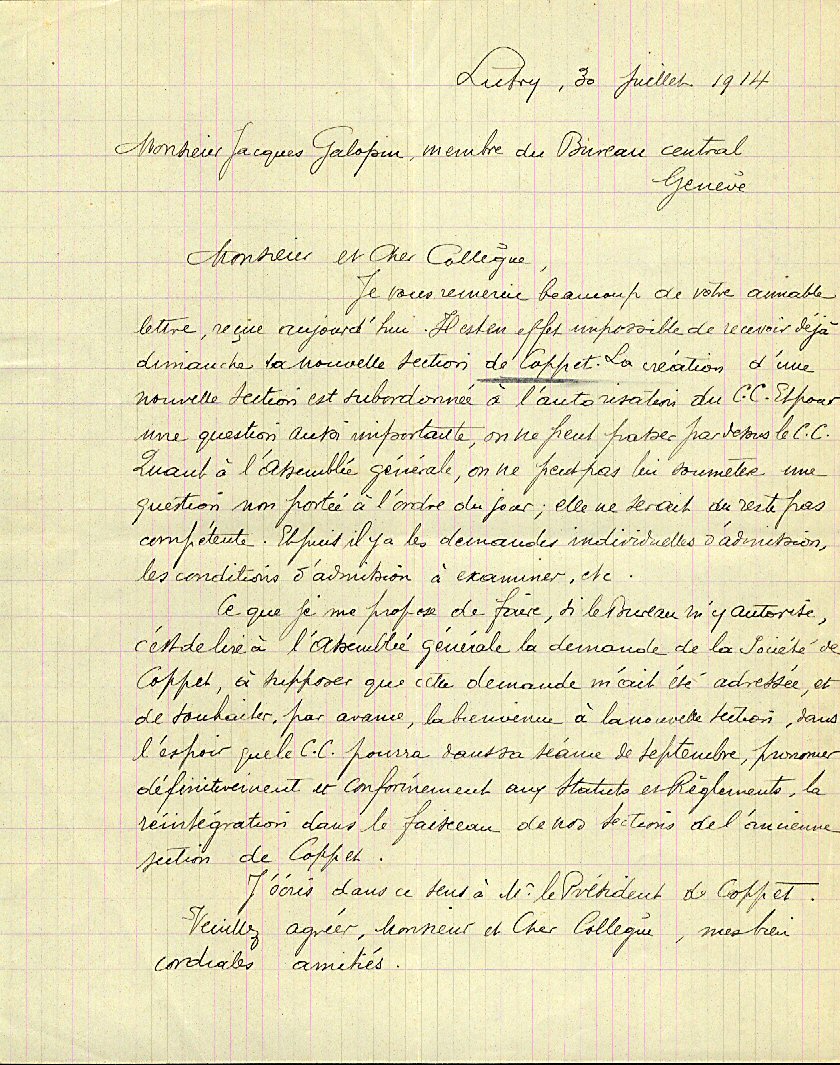 Lutry, 30 Juillet 1914
Monsieur Jacques Galopin, membre du Bureau central
Genève
Monsieur et Cher Collègue,
Je vous remercie beaucoup de votre aimable
lettre, reçue aujourd'hui. Il est en effet impossible de recevoir déjà
dimanche la nouvelle section de Coppet. La création d'une
nouvelle section est subordonnée à l'autorisation du C.C. Et pour
une question aussi importante, on ne peut passer par dessus le C.C.
Quant à l'Assemblée générale, on ne peut pas lui soumettre une
question non portée à l'ordre du jour; elle ne serait du reste pas
compétente. Et puis il y a les demandes individuelles d'admission,
les conditions d'admission à examiner, etc.
Ce que je me propose de faire, si le Bureau m'y autorise,
c'est de lire à l'Assemblée générale la demande de la Société de
Coppet, à supposer que cette demande m'ait été adressée, et
de souhaiter, par avance, la bienvenue à la nouvelle section, dans
l'espoir que le C.C. pourra dans sa séance de septembre, prononcer
définitivement et conformément aux Statuts et Règlements, la
réintégration dans le faisceau de nos sections de l'ancienne
section de Coppet.
J'écris dans ce sens à Mr. le Président de Coppet.
Veuillez agréer, Monsieur et Cher Collègue, mes bien
cordiales amitiés.